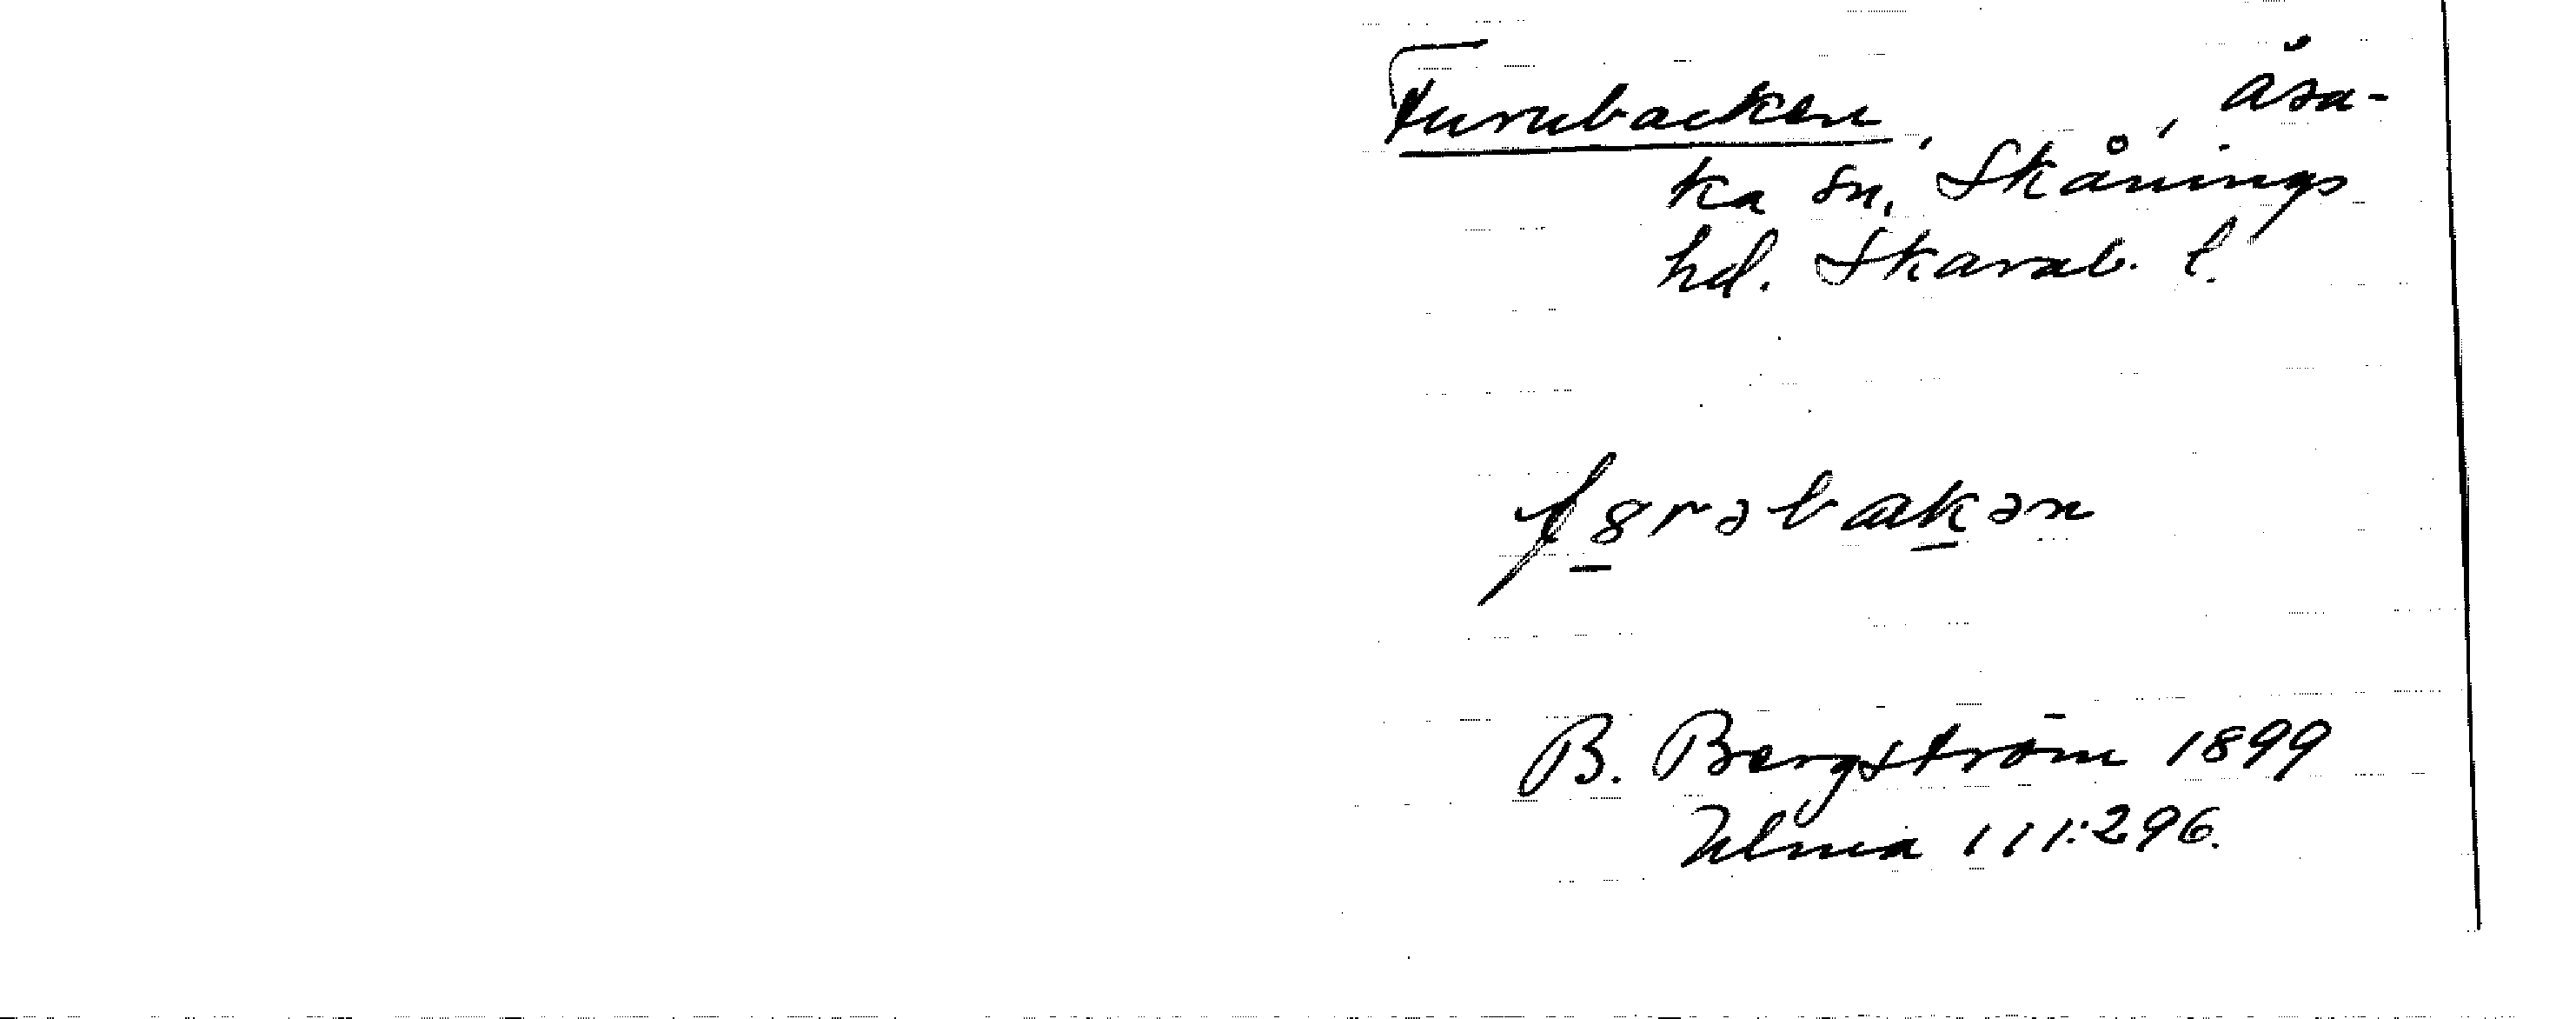 Furubacken, , Åsa-
ka sn, Skånings
hd. Skarab. l.
f8rəbakən
B. Bergström 1899
Ulma 111:296.